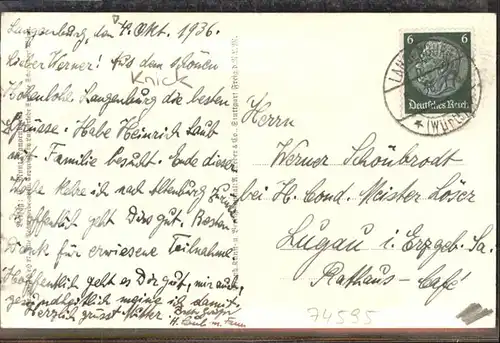 Langenburg, den 4. Okt. 1936.
Lieber Werner! Aus dem schönen
Knick
Hohenlohe Langenburg die besten
Grüsse. Habe Heinrich Laub
mit Familie besucht. Ende dieser
Woche kehre ich nach Altenburg
Hoffentlich geht Dirs gut. Besten
Dank für erwiesene Teilnahme
Hoffentlich geht es Dir gut, mir auch,
damit.
Herzlich grüsst
H. Laub u. Frau
6 6
Deutsches Reich
Herrn
Werner Schönbrodt
bei H. Cond. Meister Löser
Lugau i. Erzgeb. Sa.
Rathaus-Café
74595